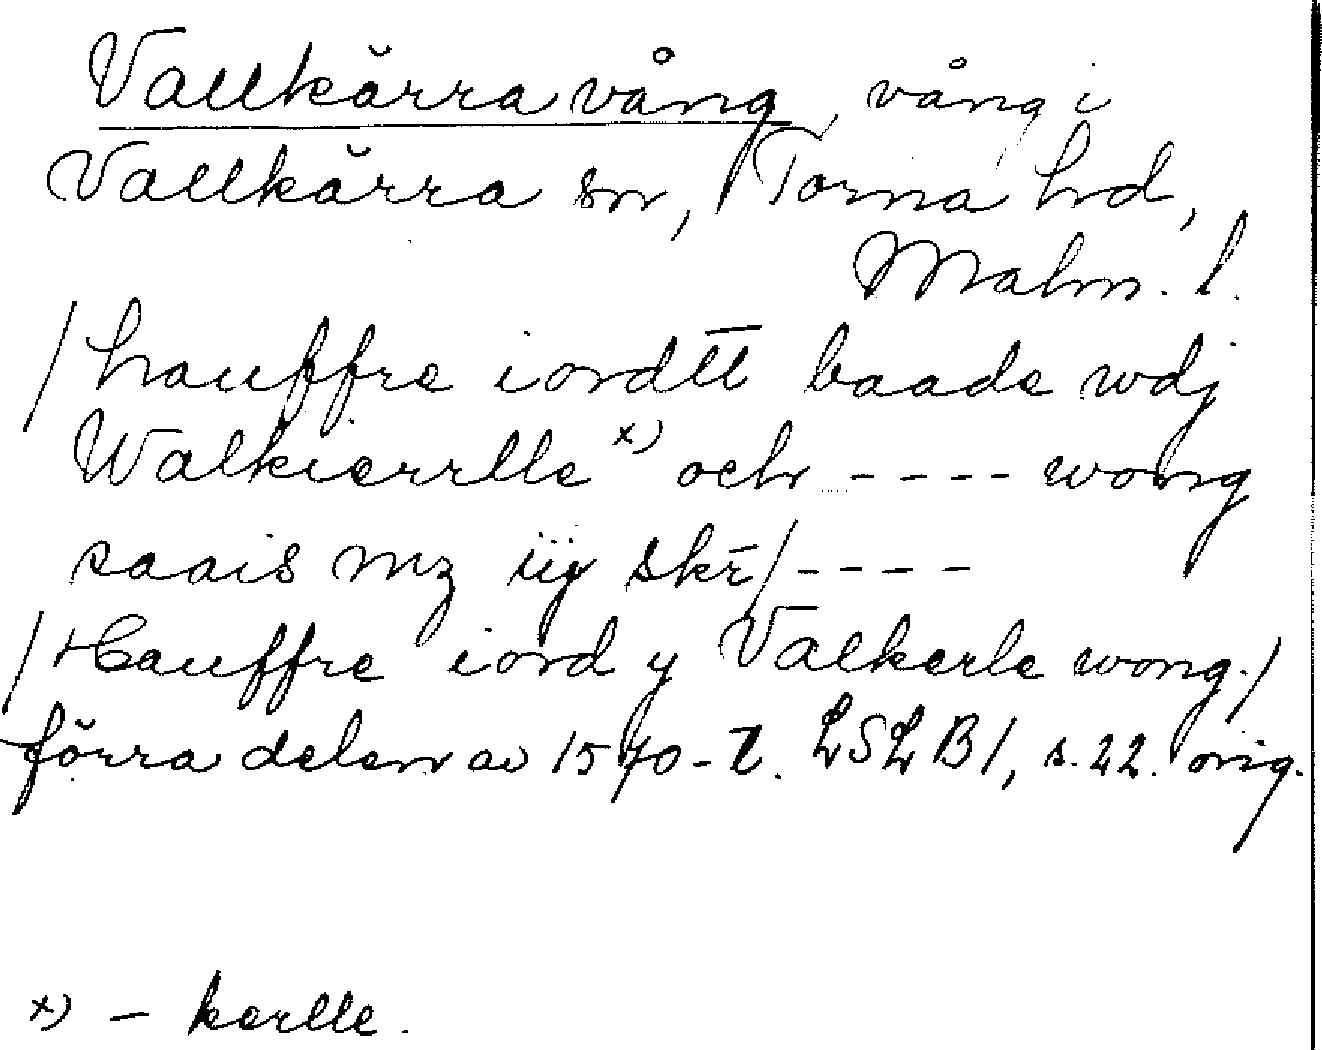 Vallkärra vång, vång i
Vallkärra sn, Torna hd,
Malm. l.
/hauffre iordtt baade wdj
Walkierrlle x) och ---- wong
saais mz iij skr̄/----
/Hauffre iord y Valkerle wong./
förra delen av 1570-t. LSLB1, s. 22. orig.
x) – kerlle.